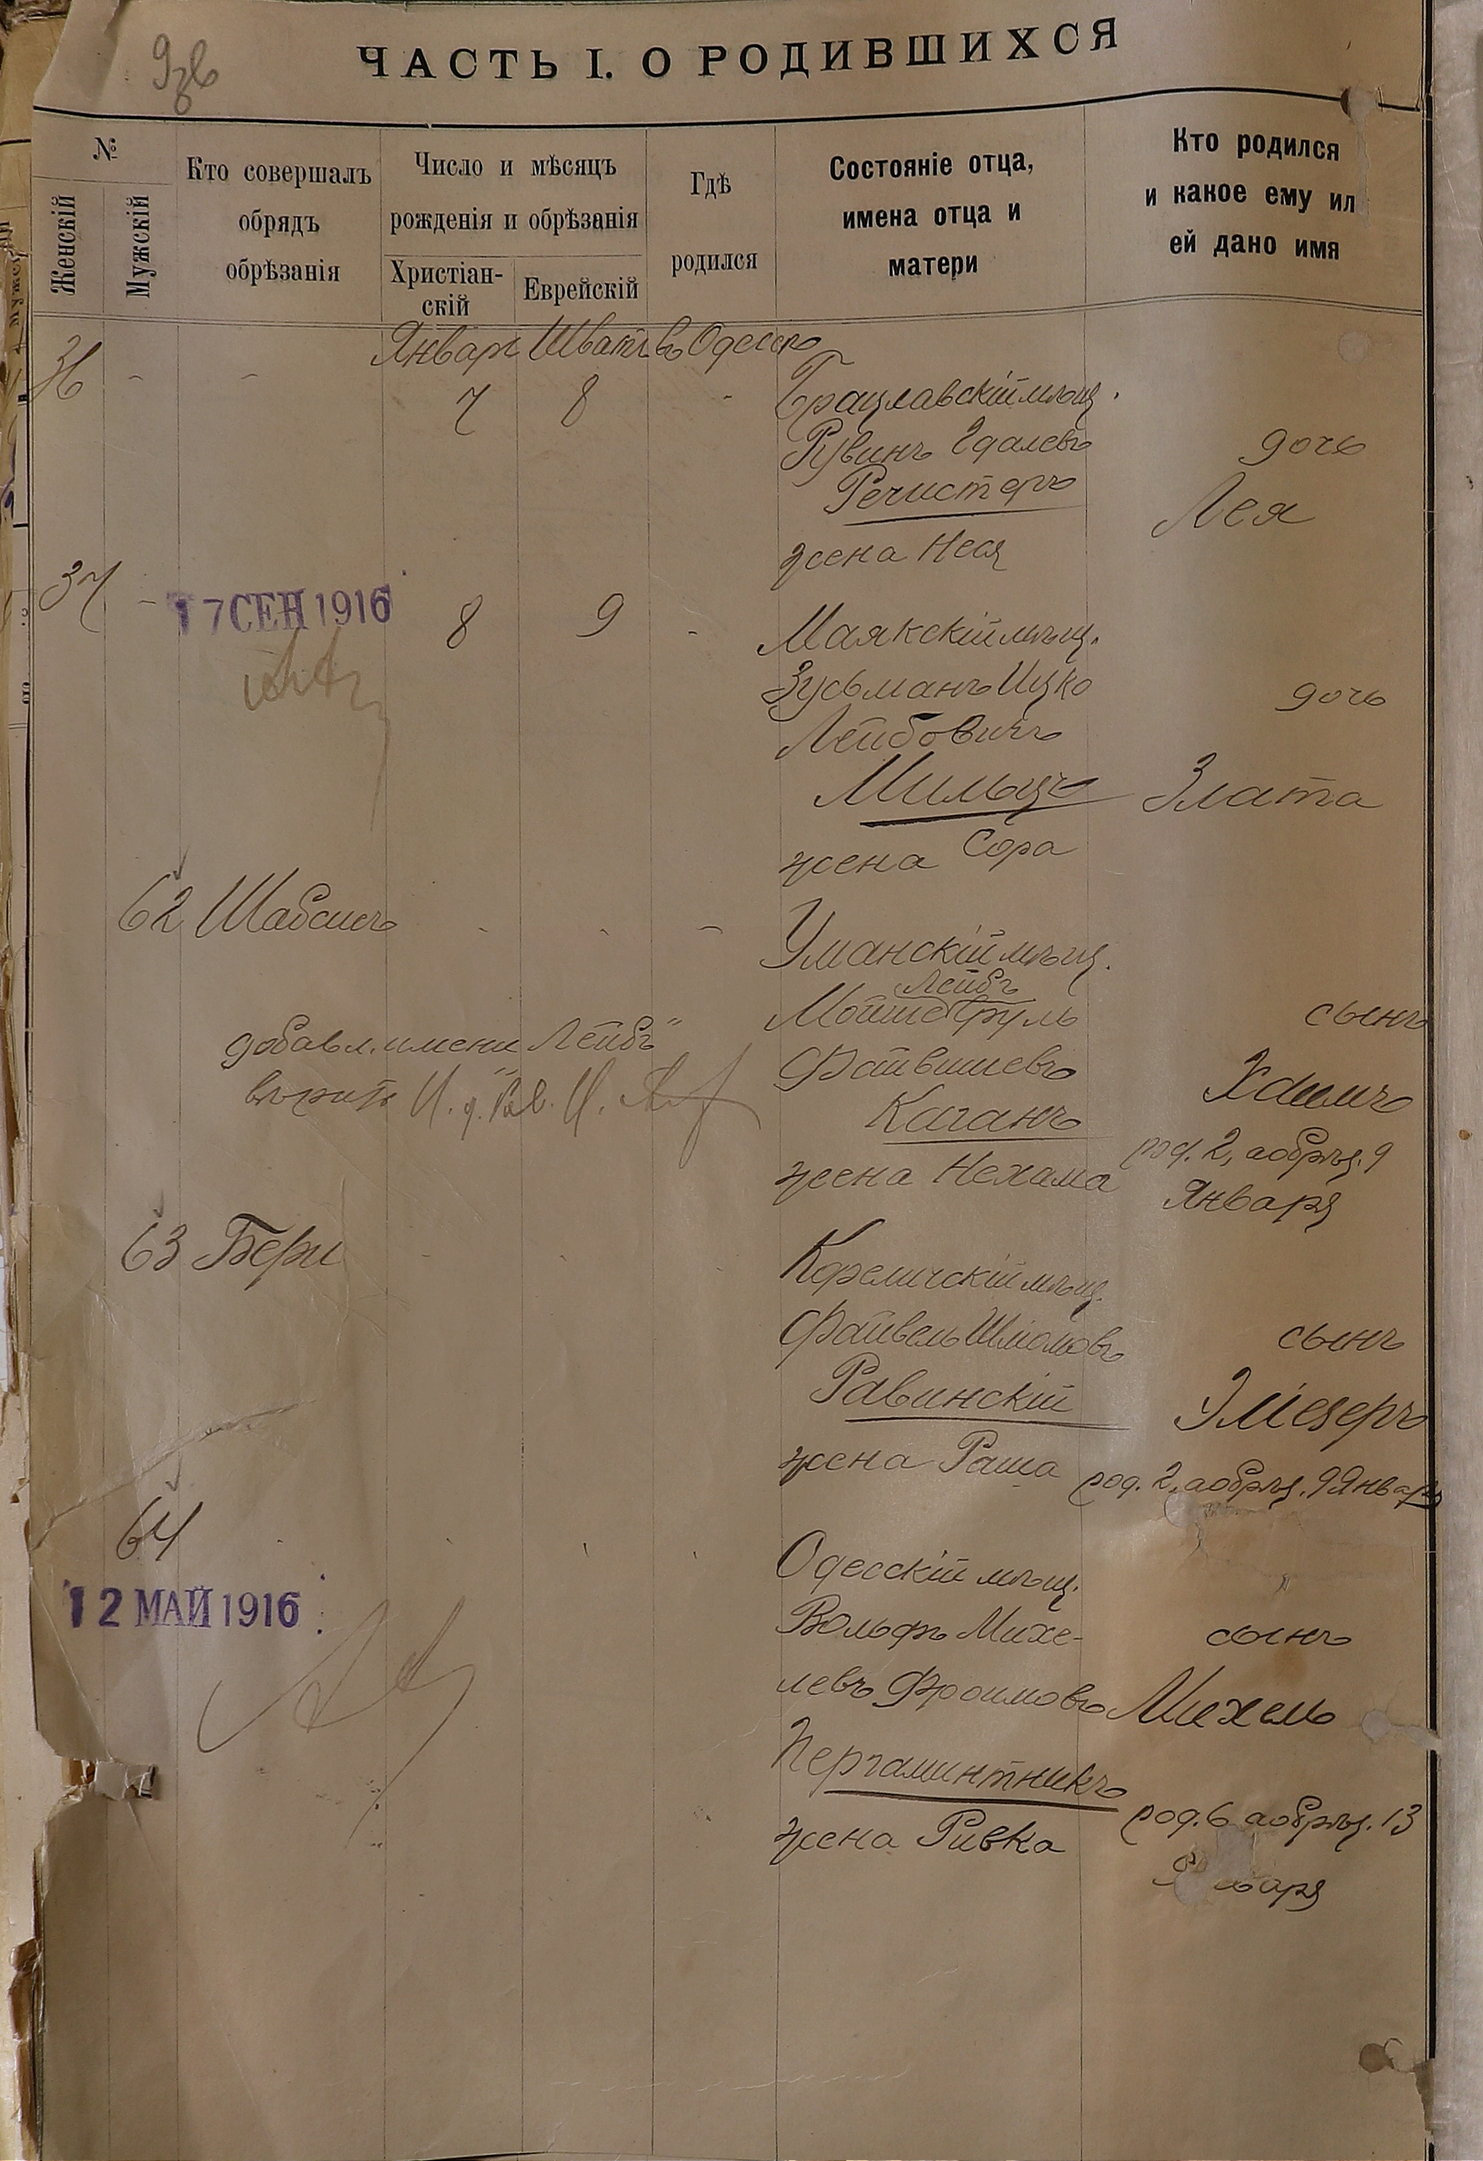 ЧАСТЬ I. О РОДИВШИХСЯ
№
Женскій
Мужскій
Кто совершалъ
обрядъ
обрѣзанія
Число и мѣсяцъ
рожденія и обрѣзанія
Христіан-
скій
Еврейскій
Гдѣ
родился
Состояніе отца,
имена отца и
матери
Кто родился
и какое ему ил
ей дано имя
Январь Шватъ въ Одессѣ
36 - - 7 8 - Брацлавскій мѣщ.
Рувинъ Гдалевъ дочь
Речистеръ
Лея
жена Неся
37 - 17 СЕН 1916 8 9 - Маякскій мѣщ.
Зусьманъ Ицко дочь
Лейбовичъ
Милыцъ Злата
жена Сора
62 Шабсисъ - - - Уманскій мѣщ.
Лейбъ
Мойше Сруль сынъ
добавл. имени „Лейбъ"
Файвишевъ Хаимъ
вѣрить И. д. Рав. И.
Каганъ
род. 2, а обрѣз. 9
жена Нехама Января
63 Бери
Кореличскій мѣщ.
Файвель Шліомовъ сынъ
Равинскій Эліезеръ
жена Раша род. 2, а обрѣз. 9 Января
64
Одесскій мѣщ.
12 МАЙ 1916
Вольфъ Михе- сынъ
левъ Фроимовъ Михель
Пергаминтникъ
род. 6 а обрѣз. 13
жена Ривка
Января